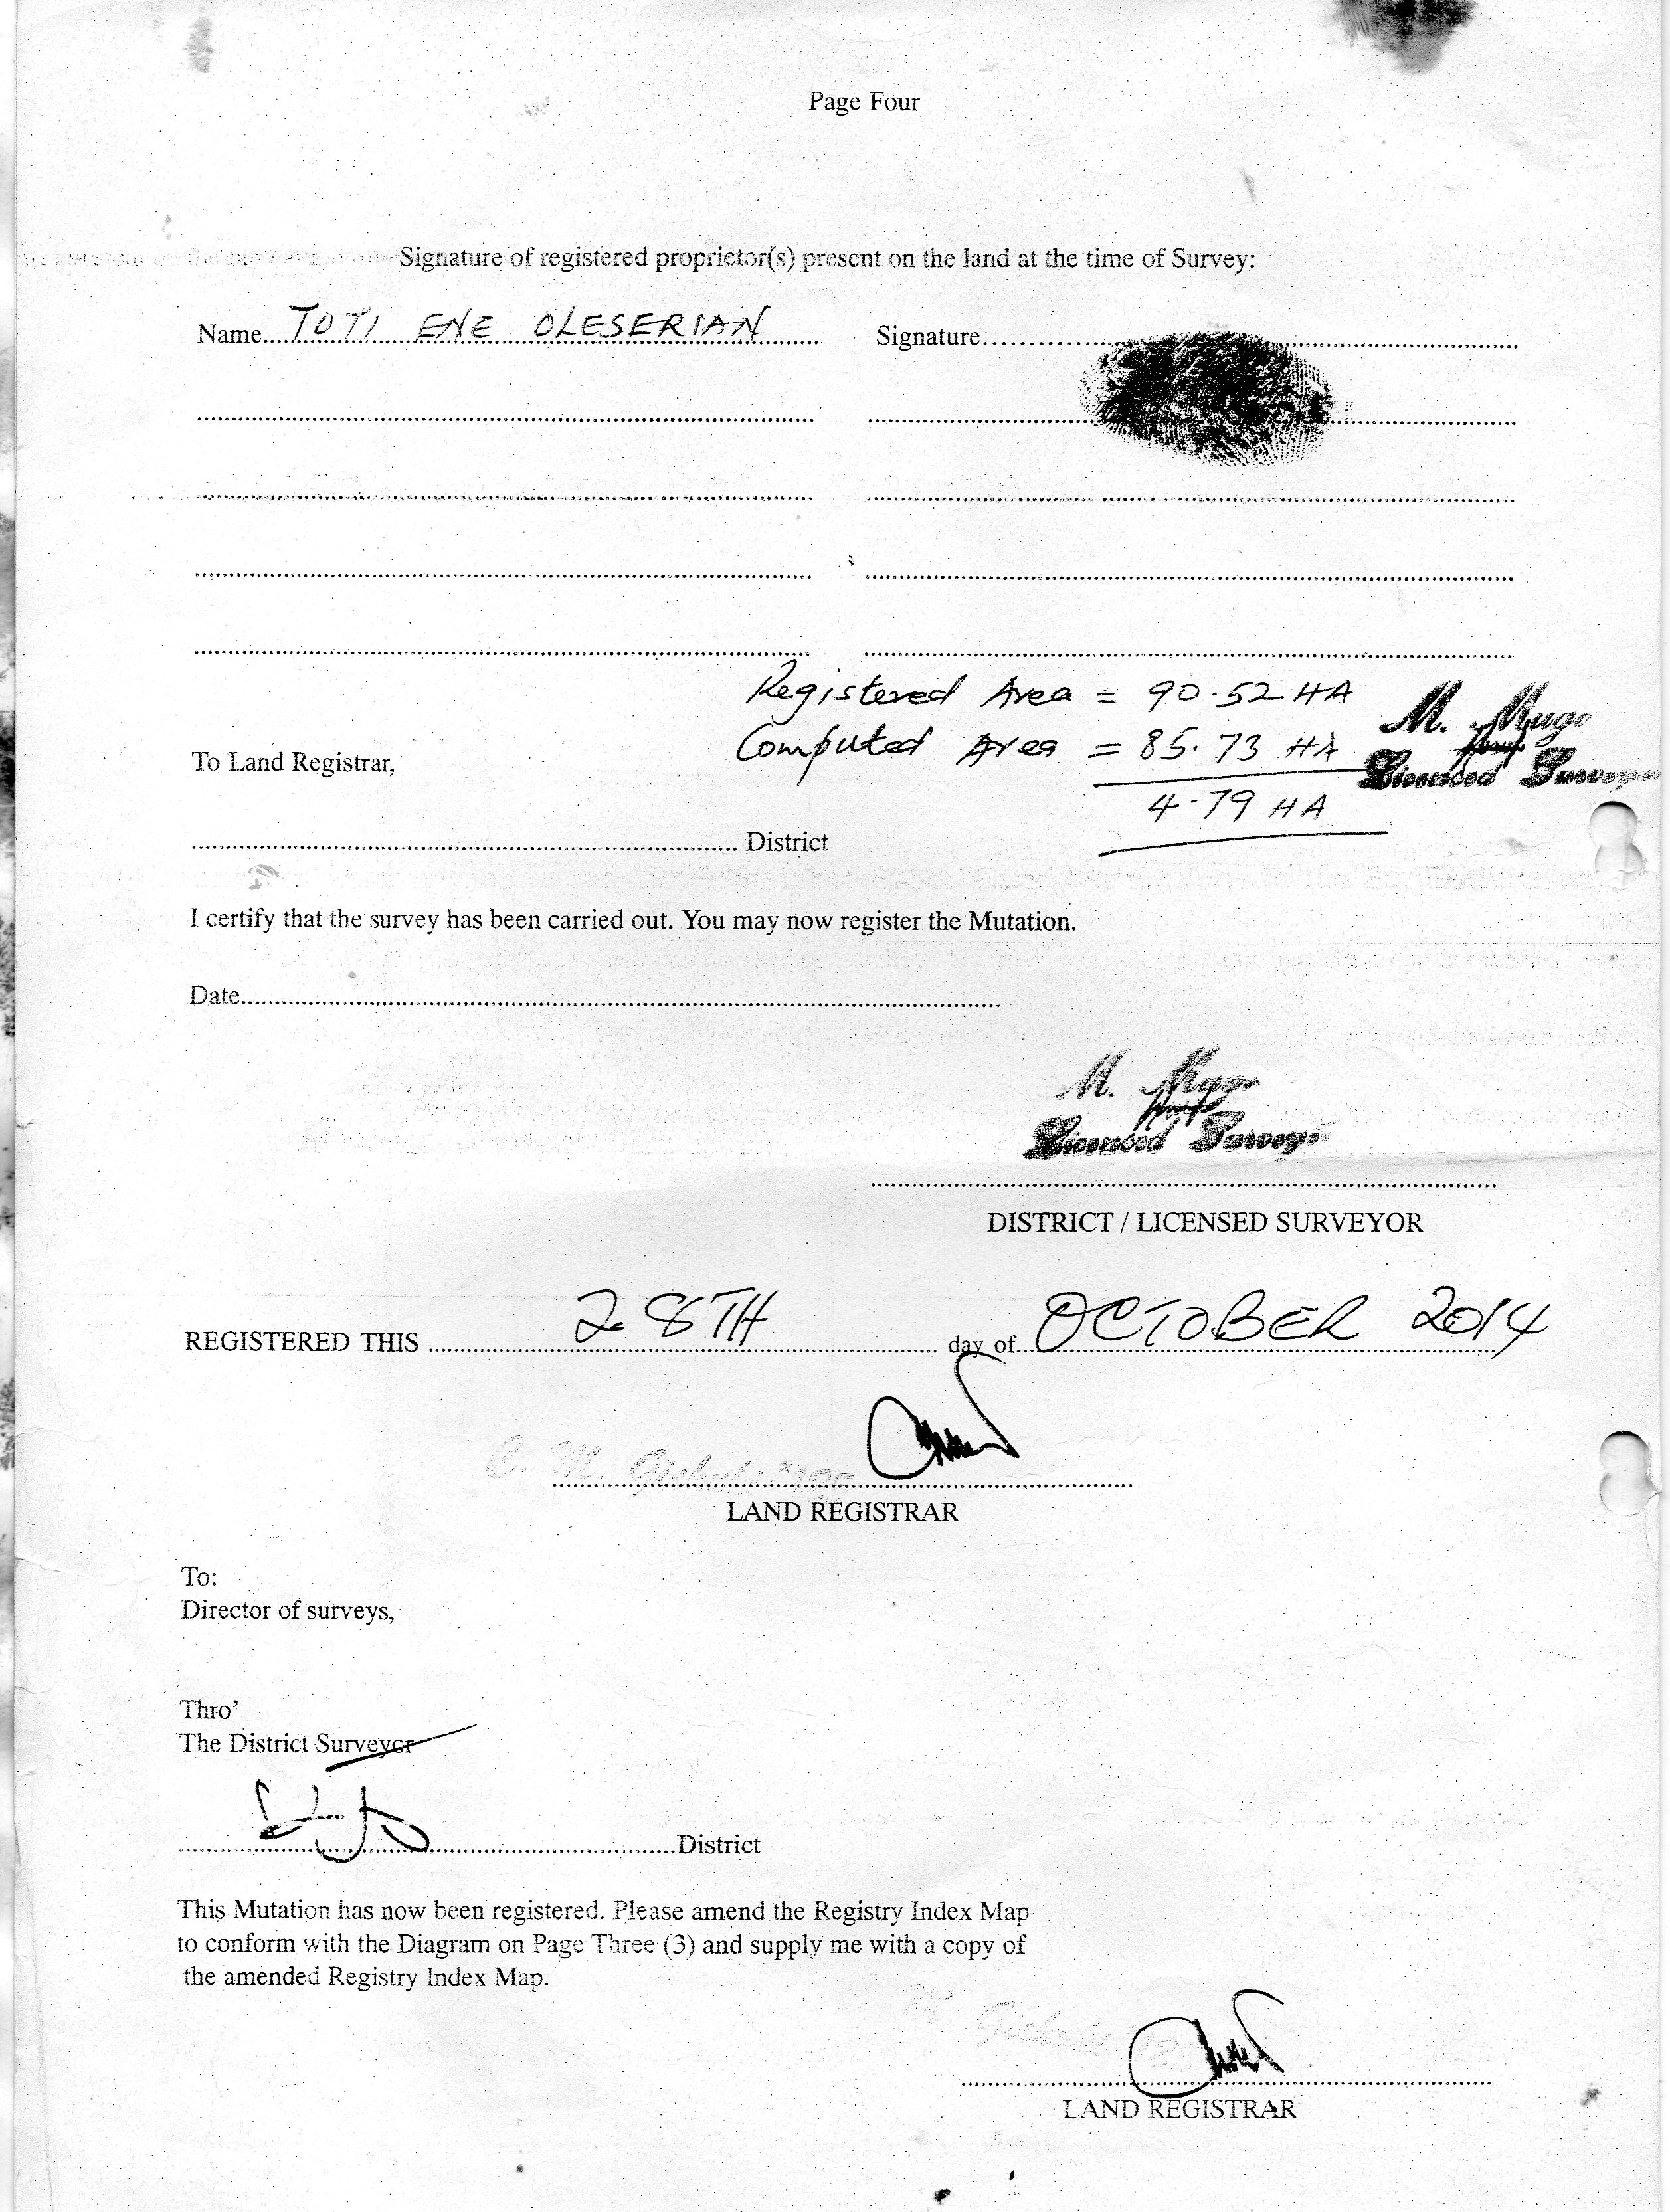 Page Four
Signature of registered proprietor(s) present on the land at the time of Survey:
Name.... TOTI ENE OLESERIAN
Signature....
Registered Area = 90.52 HA
Computed Area = 85.73 HA
4.79 HA
M. Mugo
Licensed Surveyo
To Land Registrar,
.... District
I certify that the survey has been carried out. You may now register the Mutation.
Date....
M. Mugo
Licensed Surveyo
DISTRICT / LICENSED SURVEYOR
REGISTERED THIS .... 28TH .... day of.... OCTOBER 2014
C. M. Gichuki *195
LAND REGISTRAR
To:
Director of surveys,
Thro’
The District Surveyor
....District
This Mutation has now been registered. Please amend the Registry Index Map
to conform with the Diagram on Page Three (3) and supply me with a copy of
the amended Registry Index Map.
LAND REGISTRAR